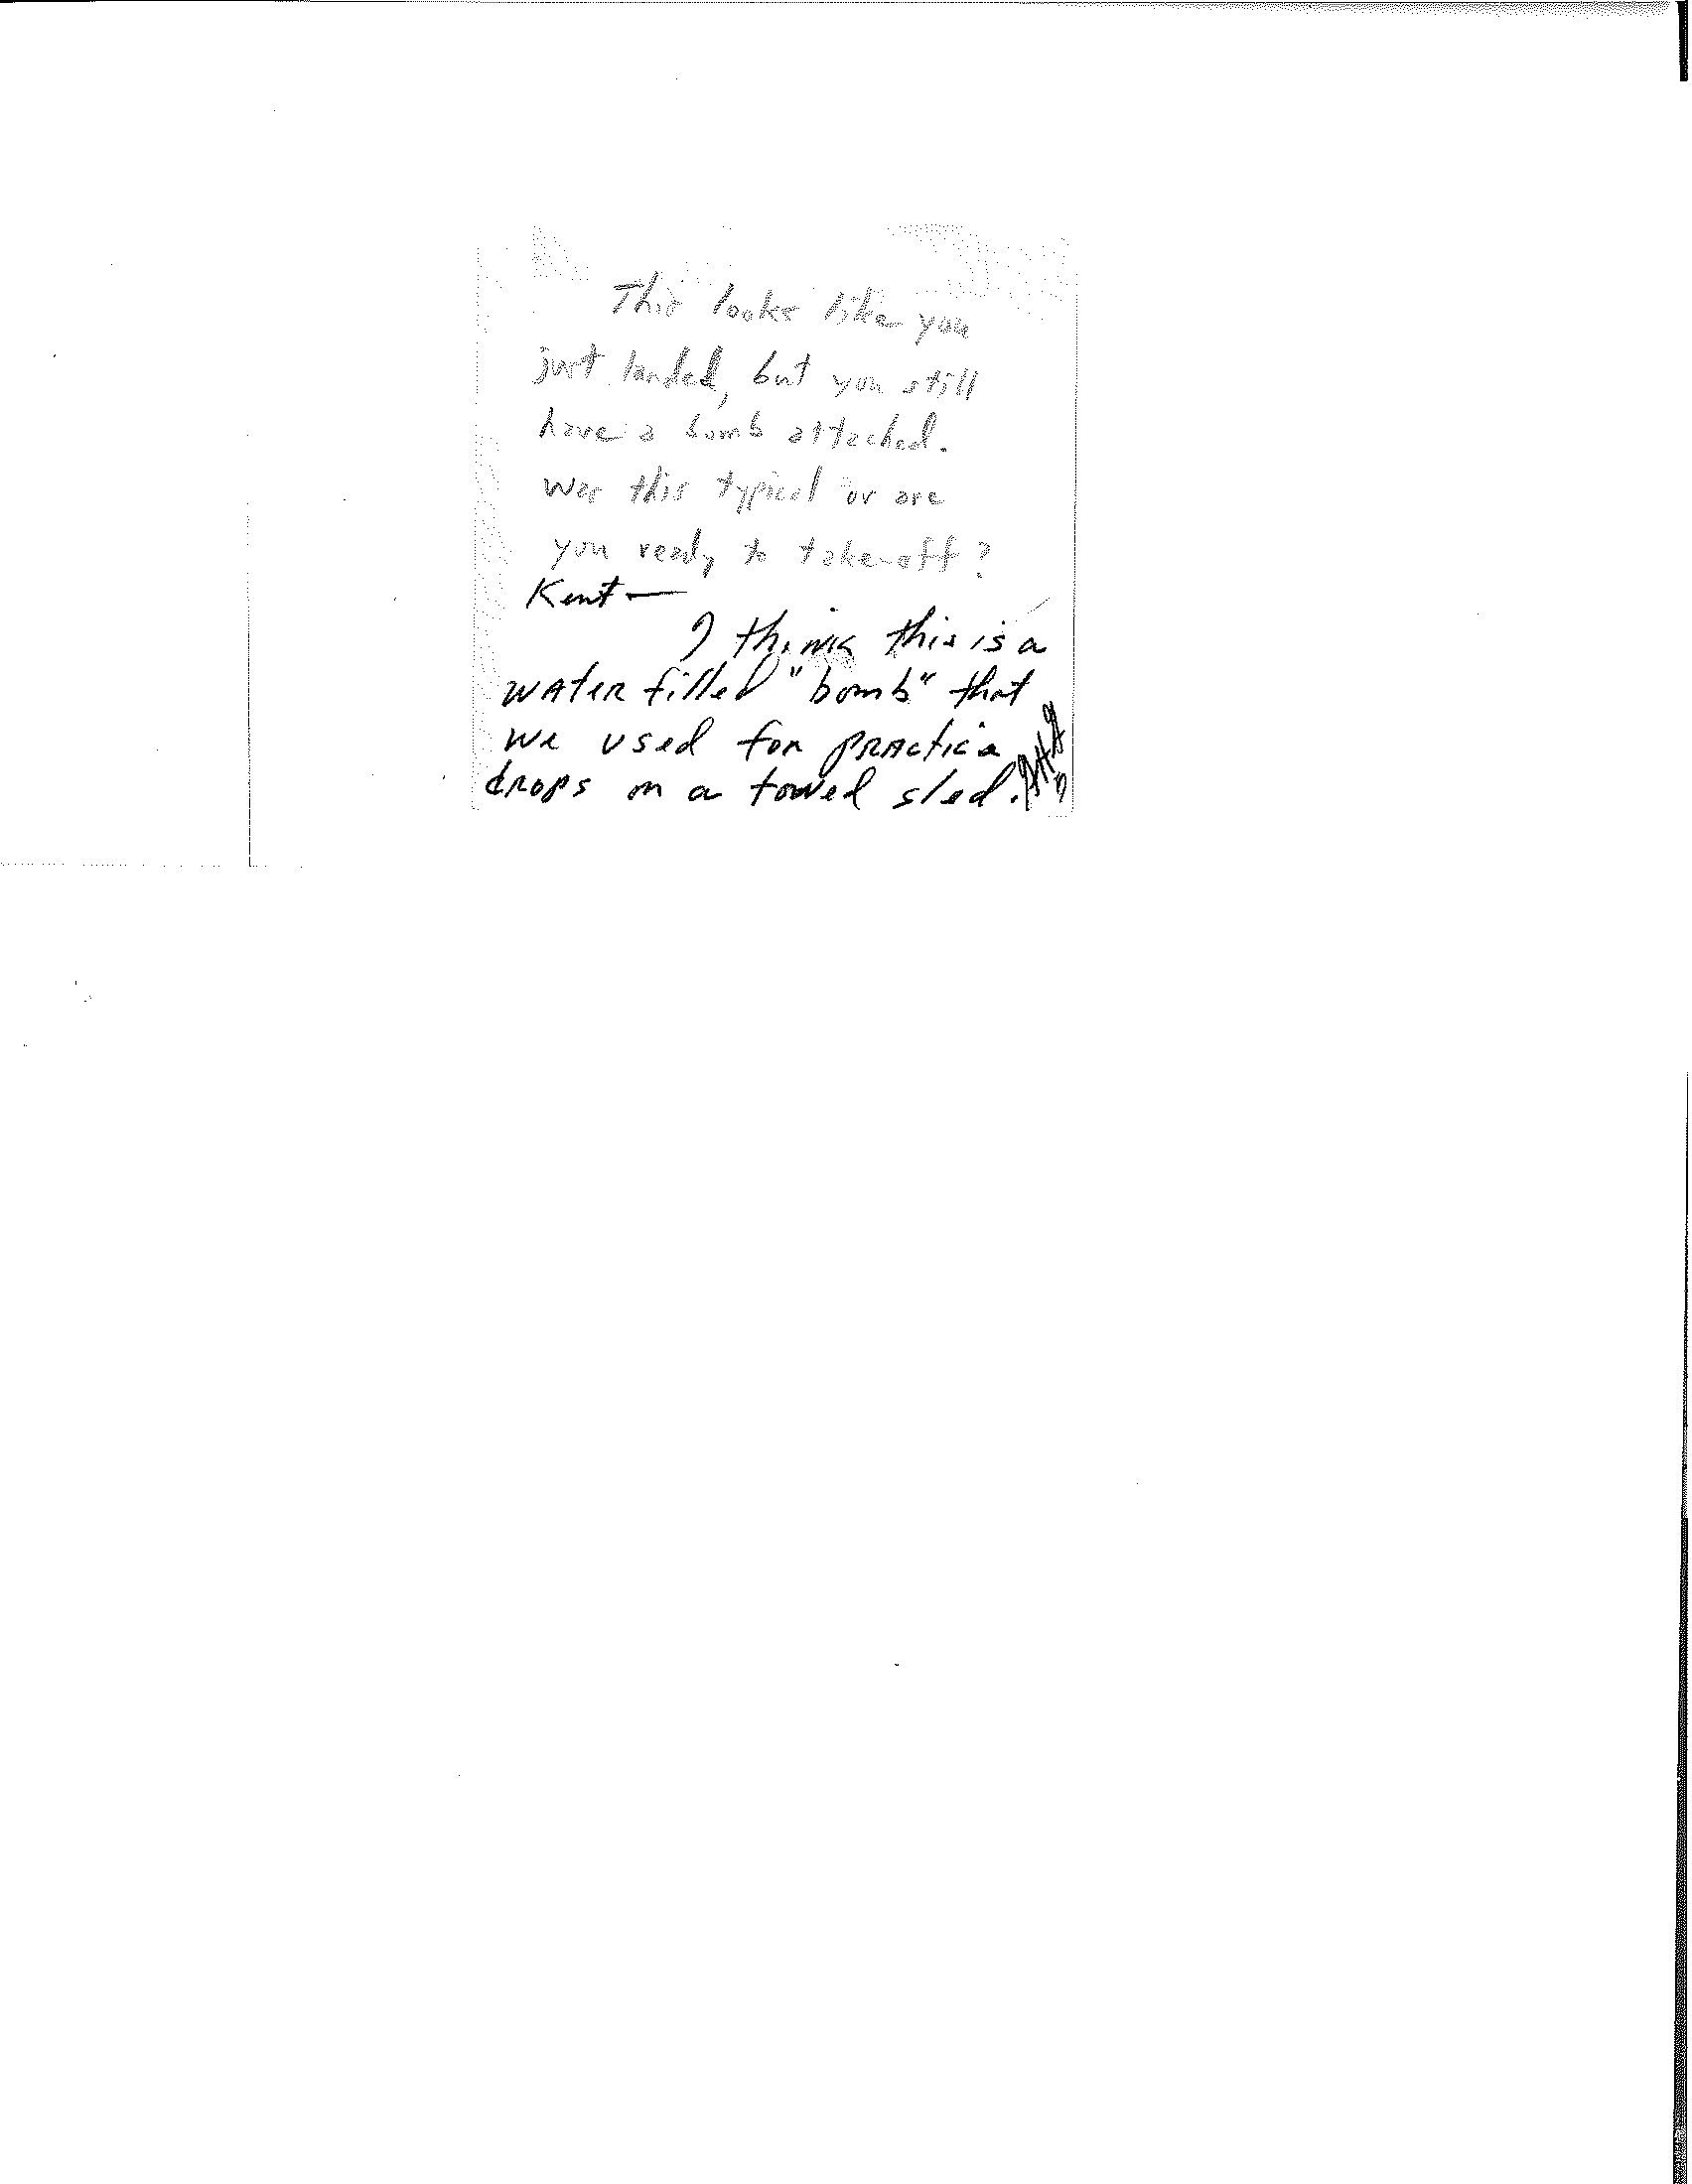 This looks like you
just landed, but you still
have a bomb attached.
Was this typical or are
you ready to take-off?
Kent —
I think this is a
water filled "bomb" that
we used for practice
drops on a towed sled.